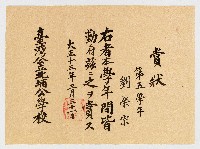 賞狀
第五學年
劉榮宗
右者本學年間皆
勤ニ付茲ニ之ヲ賞ス
大正十三年三月二十二日
臺灣公立北埔公學校